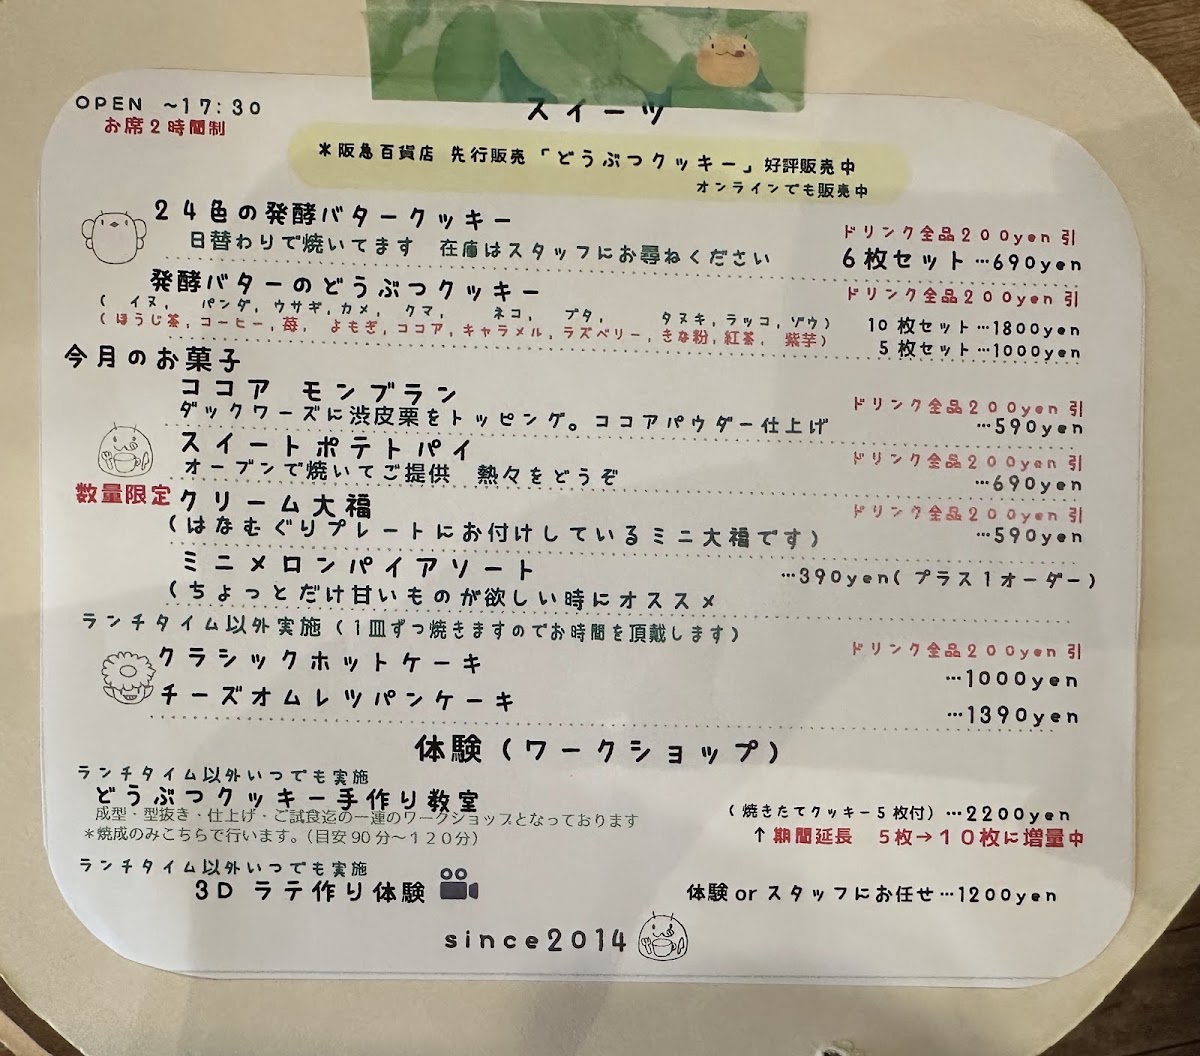 OPEN ~17:30
お席2時間制
スイーツ
*阪急百貨店 先行販売「どうぶつクッキー」好評販売中
オンラインでも販売中
24色の発酵バタークッキー
ドリンク全品200yen引
日替わりで焼いてます 在庫はスタッフにお尋ねください
6枚セット…690yen
発酵バターのどうぶつクッキー
ドリンク全品200yen引
(イヌ, パンダ, ウサギ, カメ, クマ, ネコ, ブタ, タヌキ, ラッコ, ゾウ)
10枚セット…1800yen
(ほうじ茶, コーヒー, 苺, よもぎ, ココア, キャラメル, ラズベリー, きな粉, 紅茶, 紫芋)
5枚セット…1000yen
今月のお菓子
ココア モンブラン
ドリンク全品200yen引
ダックワーズに渋皮栗をトッピング。ココアパウダー仕上げ
…590yen
スイートポテトパイ
ドリンク全品200yen引
オーブンで焼いてご提供 熱々をどうぞ
…690yen
数量限定 クリーム大福
ドリンク全品200yen引
(はなむぐりプレートにお付けしているミニ大福です)
…590yen
ミニメロンパイアソート
…390yen(プラス1オーダー)
(ちょっとだけ甘いものが欲しい時にオススメ
ランチタイム以外実施(1皿ずつ焼きますのでお時間を頂戴します)
ドリンク全品200yen引
クラシックホットケーキ
…1000yen
チーズオムレツパンケーキ
…1390yen
体験(ワークショップ)
ランチタイム以外いつでも実施
どうぶつクッキー手作り教室
(焼きたてクッキー5枚付)…2200yen
成型・型抜き・仕上げ・ご試食迄の一連のワークショップとなっております
↑期間延長 5枚→10枚に増量中
*焼成のみこちらで行います。(目安90分〜120分)
ランチタイム以外いつでも実施
3D ラテ作り体験
体験 or スタッフにお任せ…1200yen
since2014